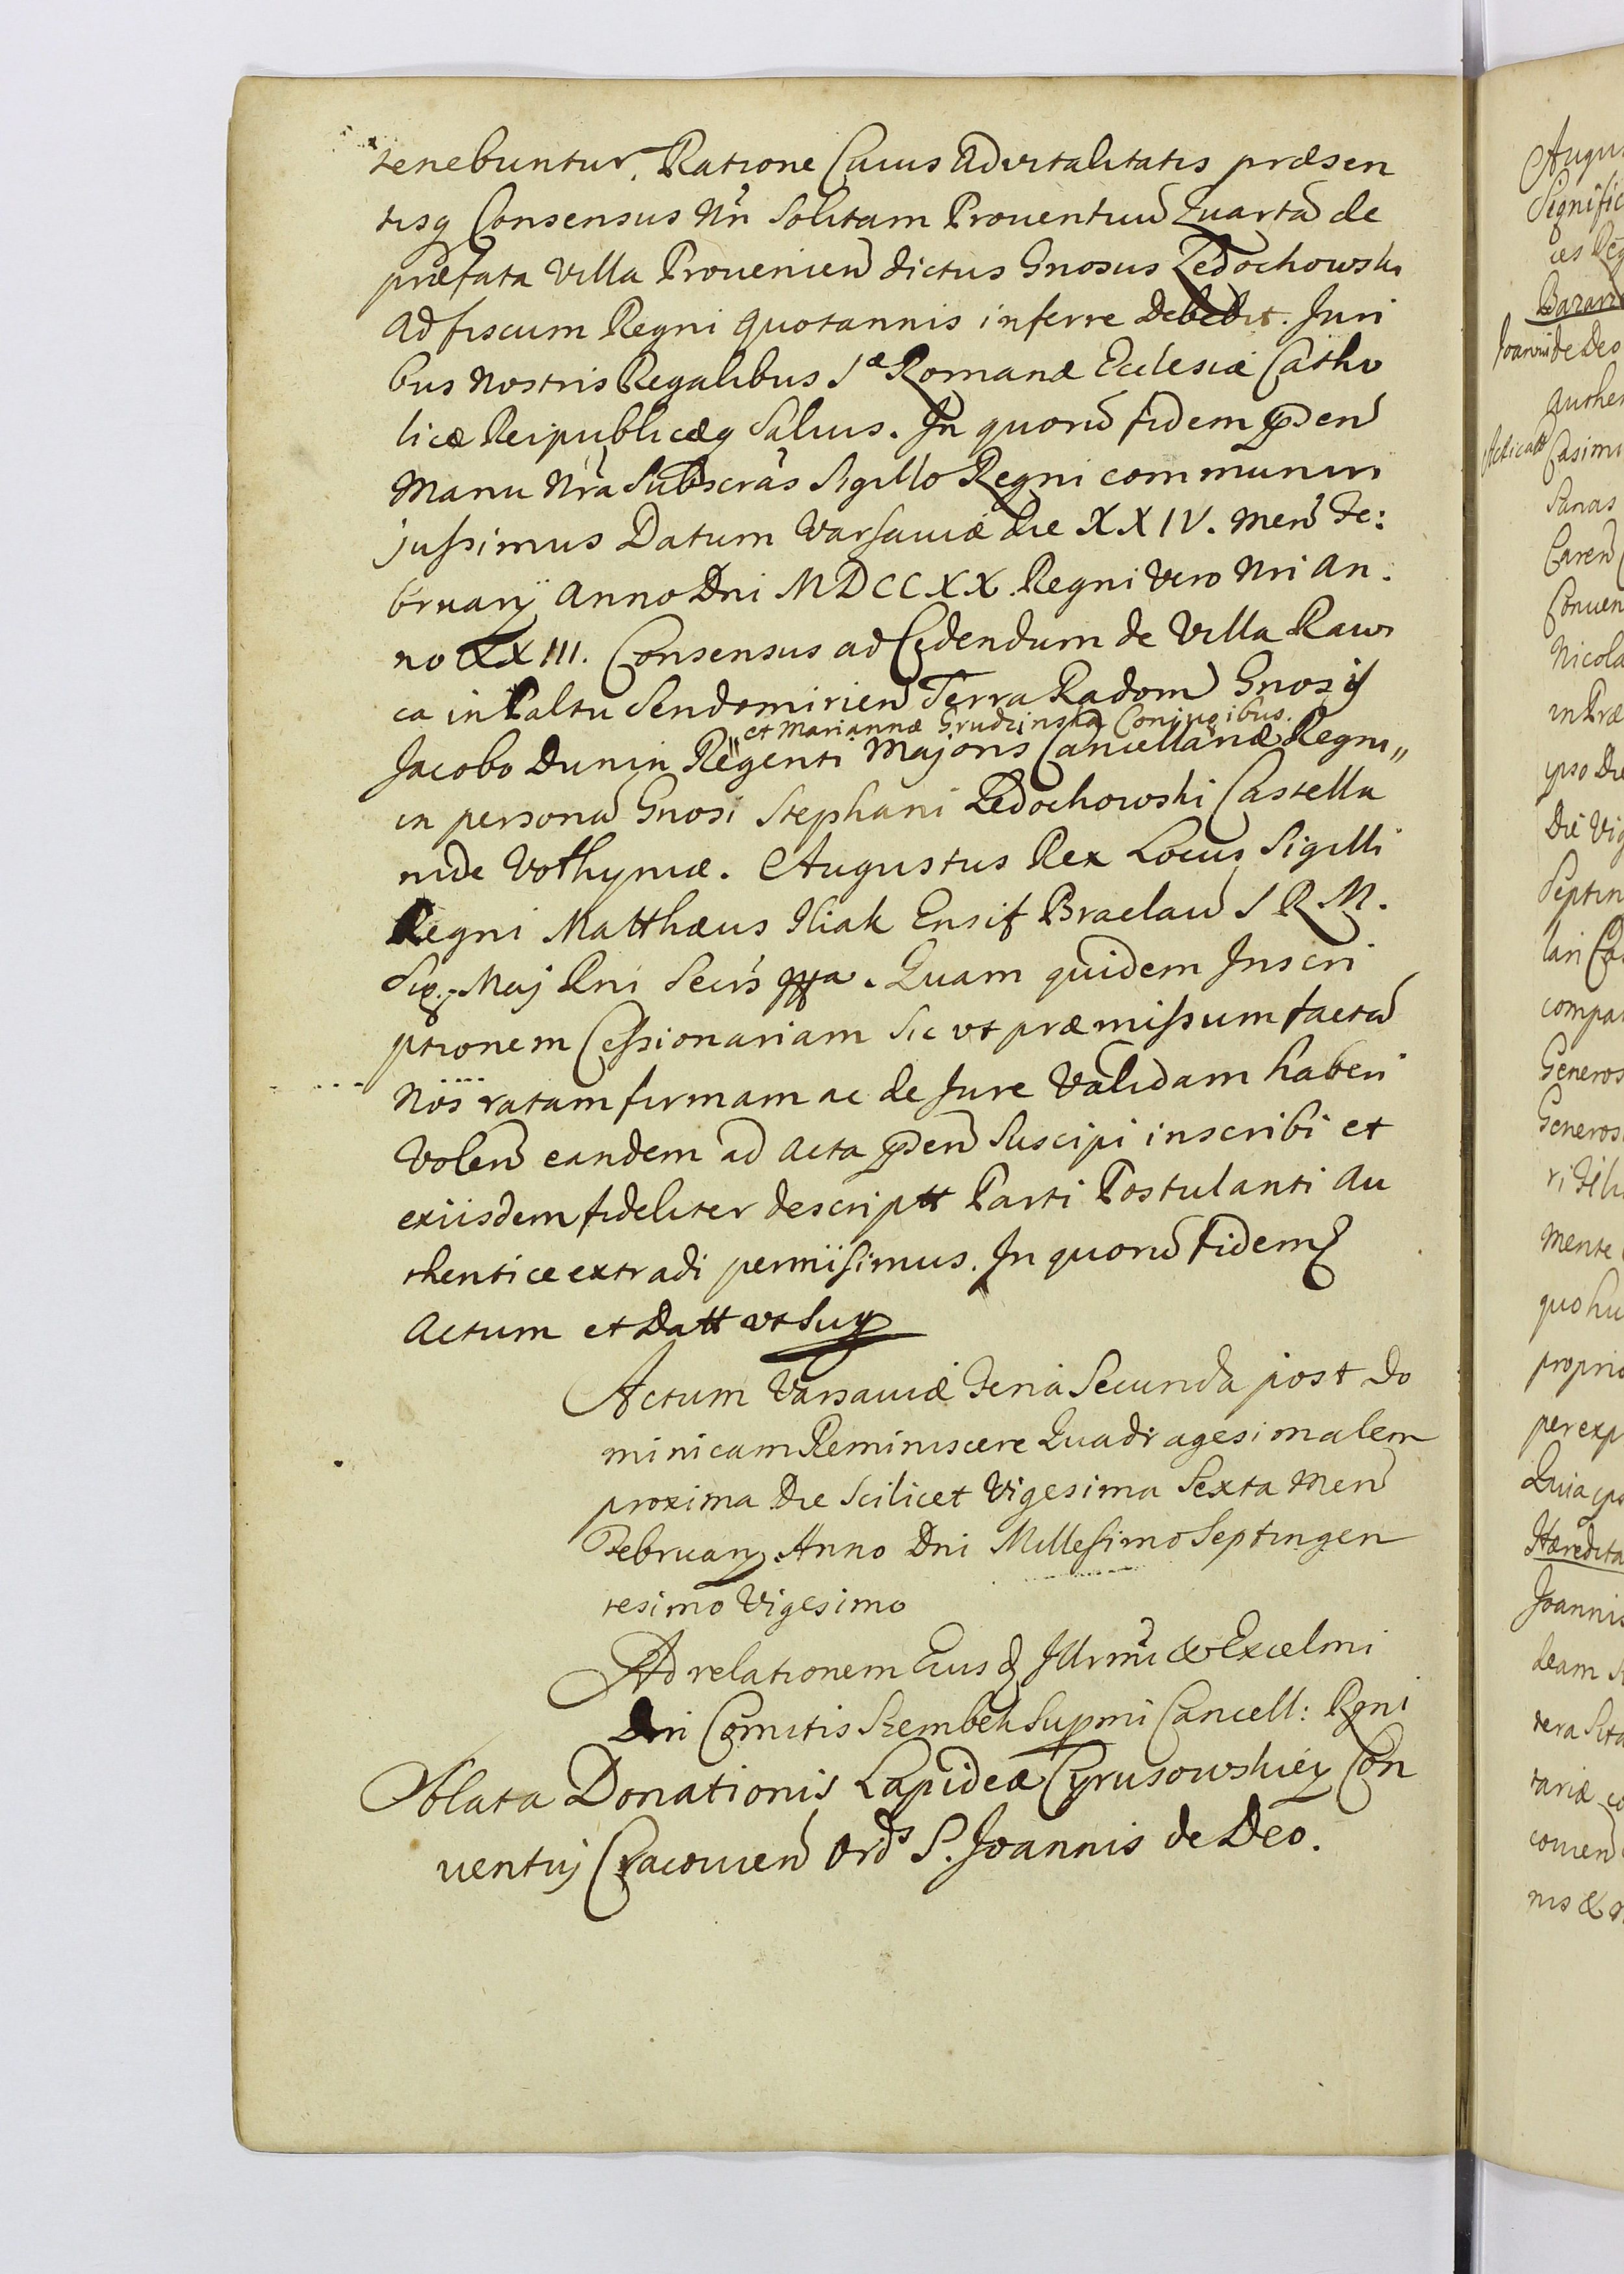 tenebuntur. Ratione Cuius Advitalitatis præsen
tisq Consensus Nri Solitam Prouentuũ Quartã de
præfata Villa Prouenieñ dictus Gnosus Ledochowski
ad fiscum Regni quotannis inferre Debebit. Juri
bus nostris Regalibus Sæ Romanæ Ecclesiæ Catho
licæ Reipublicæq Saluis. In quorũ fidem pñseñ
Manu Nrã Subscrãs Sigillo Regni communiri
jussimus Datum Varsaviæ die XXIV. Meñ Fe:
bruarij Anno Dni MDCCXX. Regni Vero Nri An.
no XXIII. Consensus ad Cedendum de Villa Raw
ca in Paltu Sendomirieñ Terra Radom Gnosis
et Mariannæ Grudzinska Coniugibus.
Jacobo Dunin Regenti Majoris Cancellariæ Regni
in personã Gnosi Stephani Ledochowski Castella
nide Volhyniæ. Augustus Rex Locus Sigilli
Regni Matthæus Iliak Ensif Braclaw S R M.
Sig. Maj Rni Secrs mppa. Quam quidem Inscri
ptionem Cessionariam Sic ut præmissum factã
Nos ratam firmam ac de Jure Validam haberi
Voleñ eandem ad Acta pñseñ Suscipi inscribi et
exiisdem fideliter descriptt Parti Postulanti Au
thentice extradi permisimus. In quorũ Fidem
Actum et Datt ut Sup
Actum Varsaviæ Feria Secunda post Do
minicam Reminiscere Quadragesimalem
proxima Die Scilicet Vigesima Sexta Meñ
Februarij Anno Dni Millesimo Septingen
tesimo Vigesimo
Ad relationem Eius Illrmi & Excelmi
Dni Comitis Szembek Supmi Cancell: Rgni
Oblata Donationis Lapideæ Cyrusowskiey Con
ventuj Cracovieñ Ords S. Joannis de Deo.